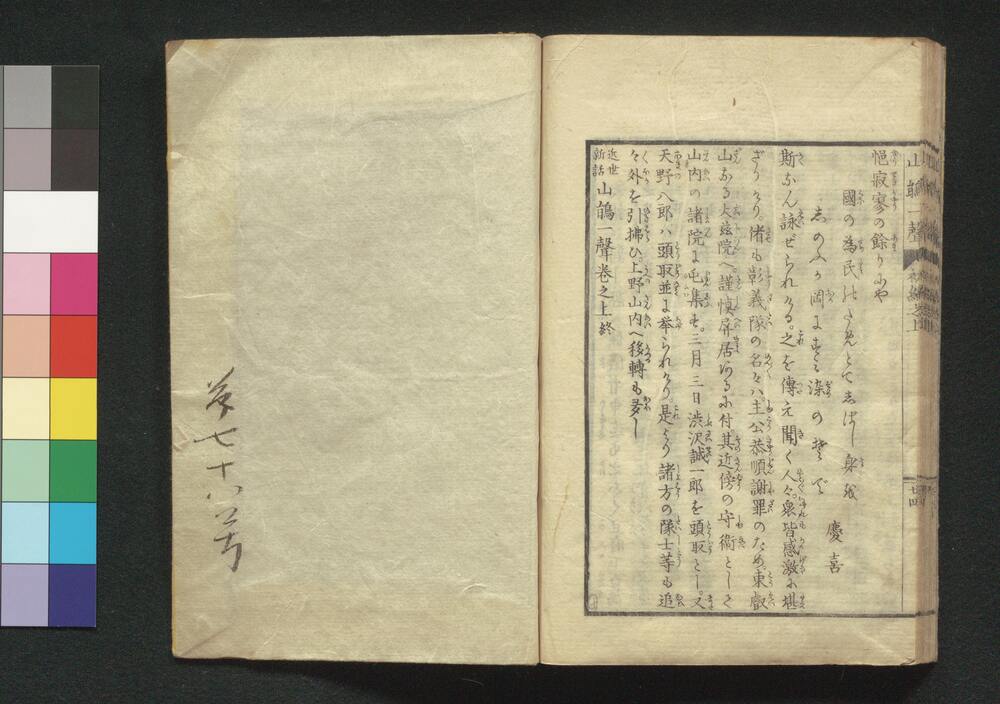 山鵑一聲
悒寂寥の餘りにや
國の為民のためとてしばし身を
しのぶが岡にすみ染のそで
慶喜
斯なん詠ぜられける。之を傳え聞く人々。衆皆感激に堪
ざりけり。偖も彰義隊の名々ハ。主公恭順謝罪のため。東叡
山なる大慈院へ。謹慎屏居なるに付。其近傍の守衛として
山内の諸院に屯集す。三月三日渋沢誠一郎を頭取とし。又
天野八郎ハ頭取並に挙られけり。是より諸方の隊士等も追
々外を引拂ひ。上野山内へ移轉も多し
近世新話 山鵑一聲卷之上終
七十八号